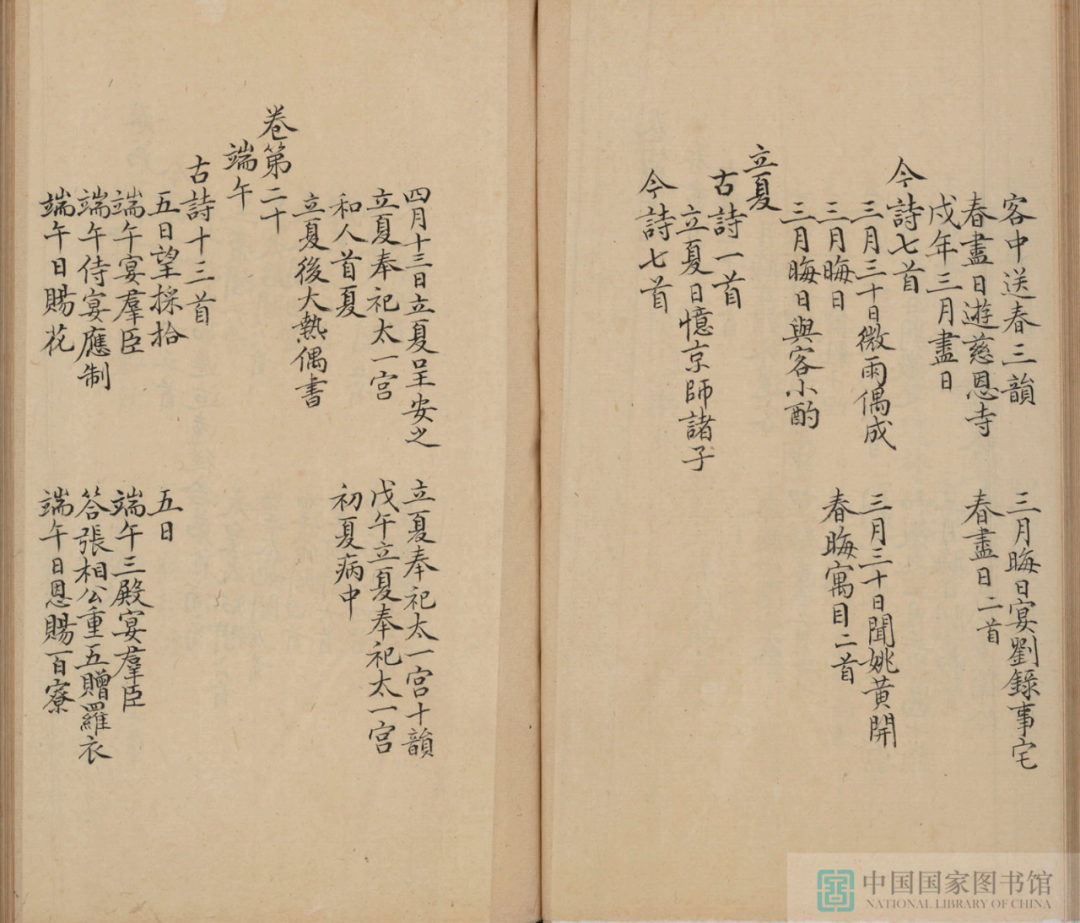 客中送春三韻　三月晦日宴劉録事宅
春盡日遊慈恩寺　春盡日二首
戊年三月盡日
今詩七首
三月三十日微雨偶成　三月三十日聞姚黄開
三月晦日　春晦寓目二首
三月晦日與客小酌
立夏
古詩一首
立夏日憶京師諸子
今詩七首
四月十三日立夏呈安之　立夏奉祀太一宫十韻
立夏奉祀太一宫　戊午立夏奉祀太一宫
和人首夏　初夏病中
立夏後大熱偶書
卷第二十
端午
古詩十三首
五日望採拾　五日
端午宴羣臣　端午三殿宴羣臣
端午侍宴應制　答張相公重五贈羅衣
端午日賜花　端午日恩賜百寮
中国国家图书馆
NATIONAL LIBRARY OF CHINA